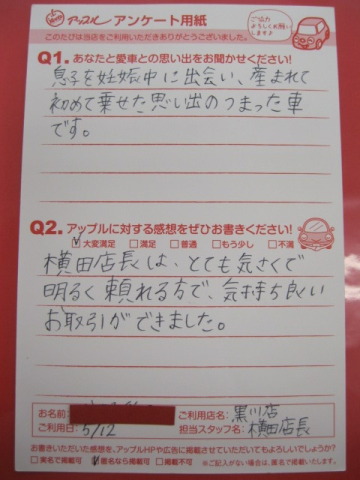 アップル アンケート用紙
ご協力
よろしくお願い
します♪
このたびは当店をご利用いただきありがとうございました。
Q1. あなたと愛車との思い出をお聞かせください!
息子を妊娠中に出会い、産まれて
初めて乗せた思い出のつまった車
です。
Q2. アップルに対する感想をぜひお書きください!
☑大変満足 □満足 □普通 □もう少し □不満
横田店長は、とても気さくで
明るく頼れる方で、気持ち良い
お取引ができました。
お名前:
ご利用店名: 黒川店
ご利用日: 5/12
担当スタッフ名: 横田店長
お書きいただいた感想を、アップルHPや広告に掲載させていただいてもよろしいでしょうか?
□実名で掲載可 ☑匿名なら掲載可 □掲載不可 ※ご記入がない場合は、匿名で掲載いたします。